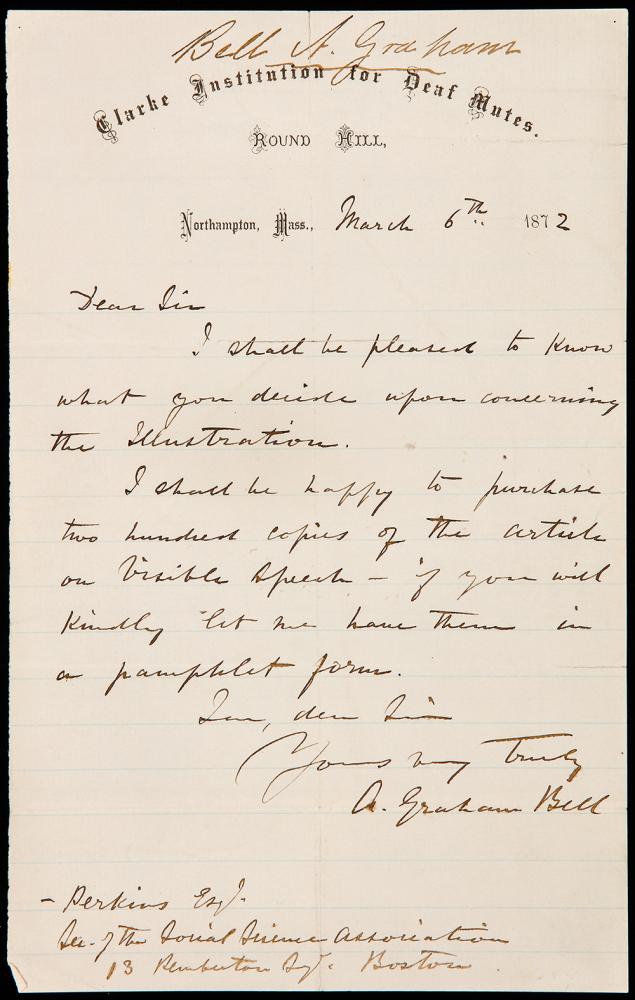 Bell A. Graham
Clarke Institution for Deaf Mutes.
Round Hill,
Northampton, Mass., March 6th 1872
Dear Sir
I shall be pleased to know
what you decide upon concerning
the Illustration.
I shall be happy to purchase
two hundred copies of the article
on Visible Speech - if you will
Kindly let me have them in
a pamphlet form.
I am, dear Sir
Yours very truly
A. Graham Bell
- Perkins Esq.
Sec. of the Social Science Association
13 Pemberton Sq. Boston.